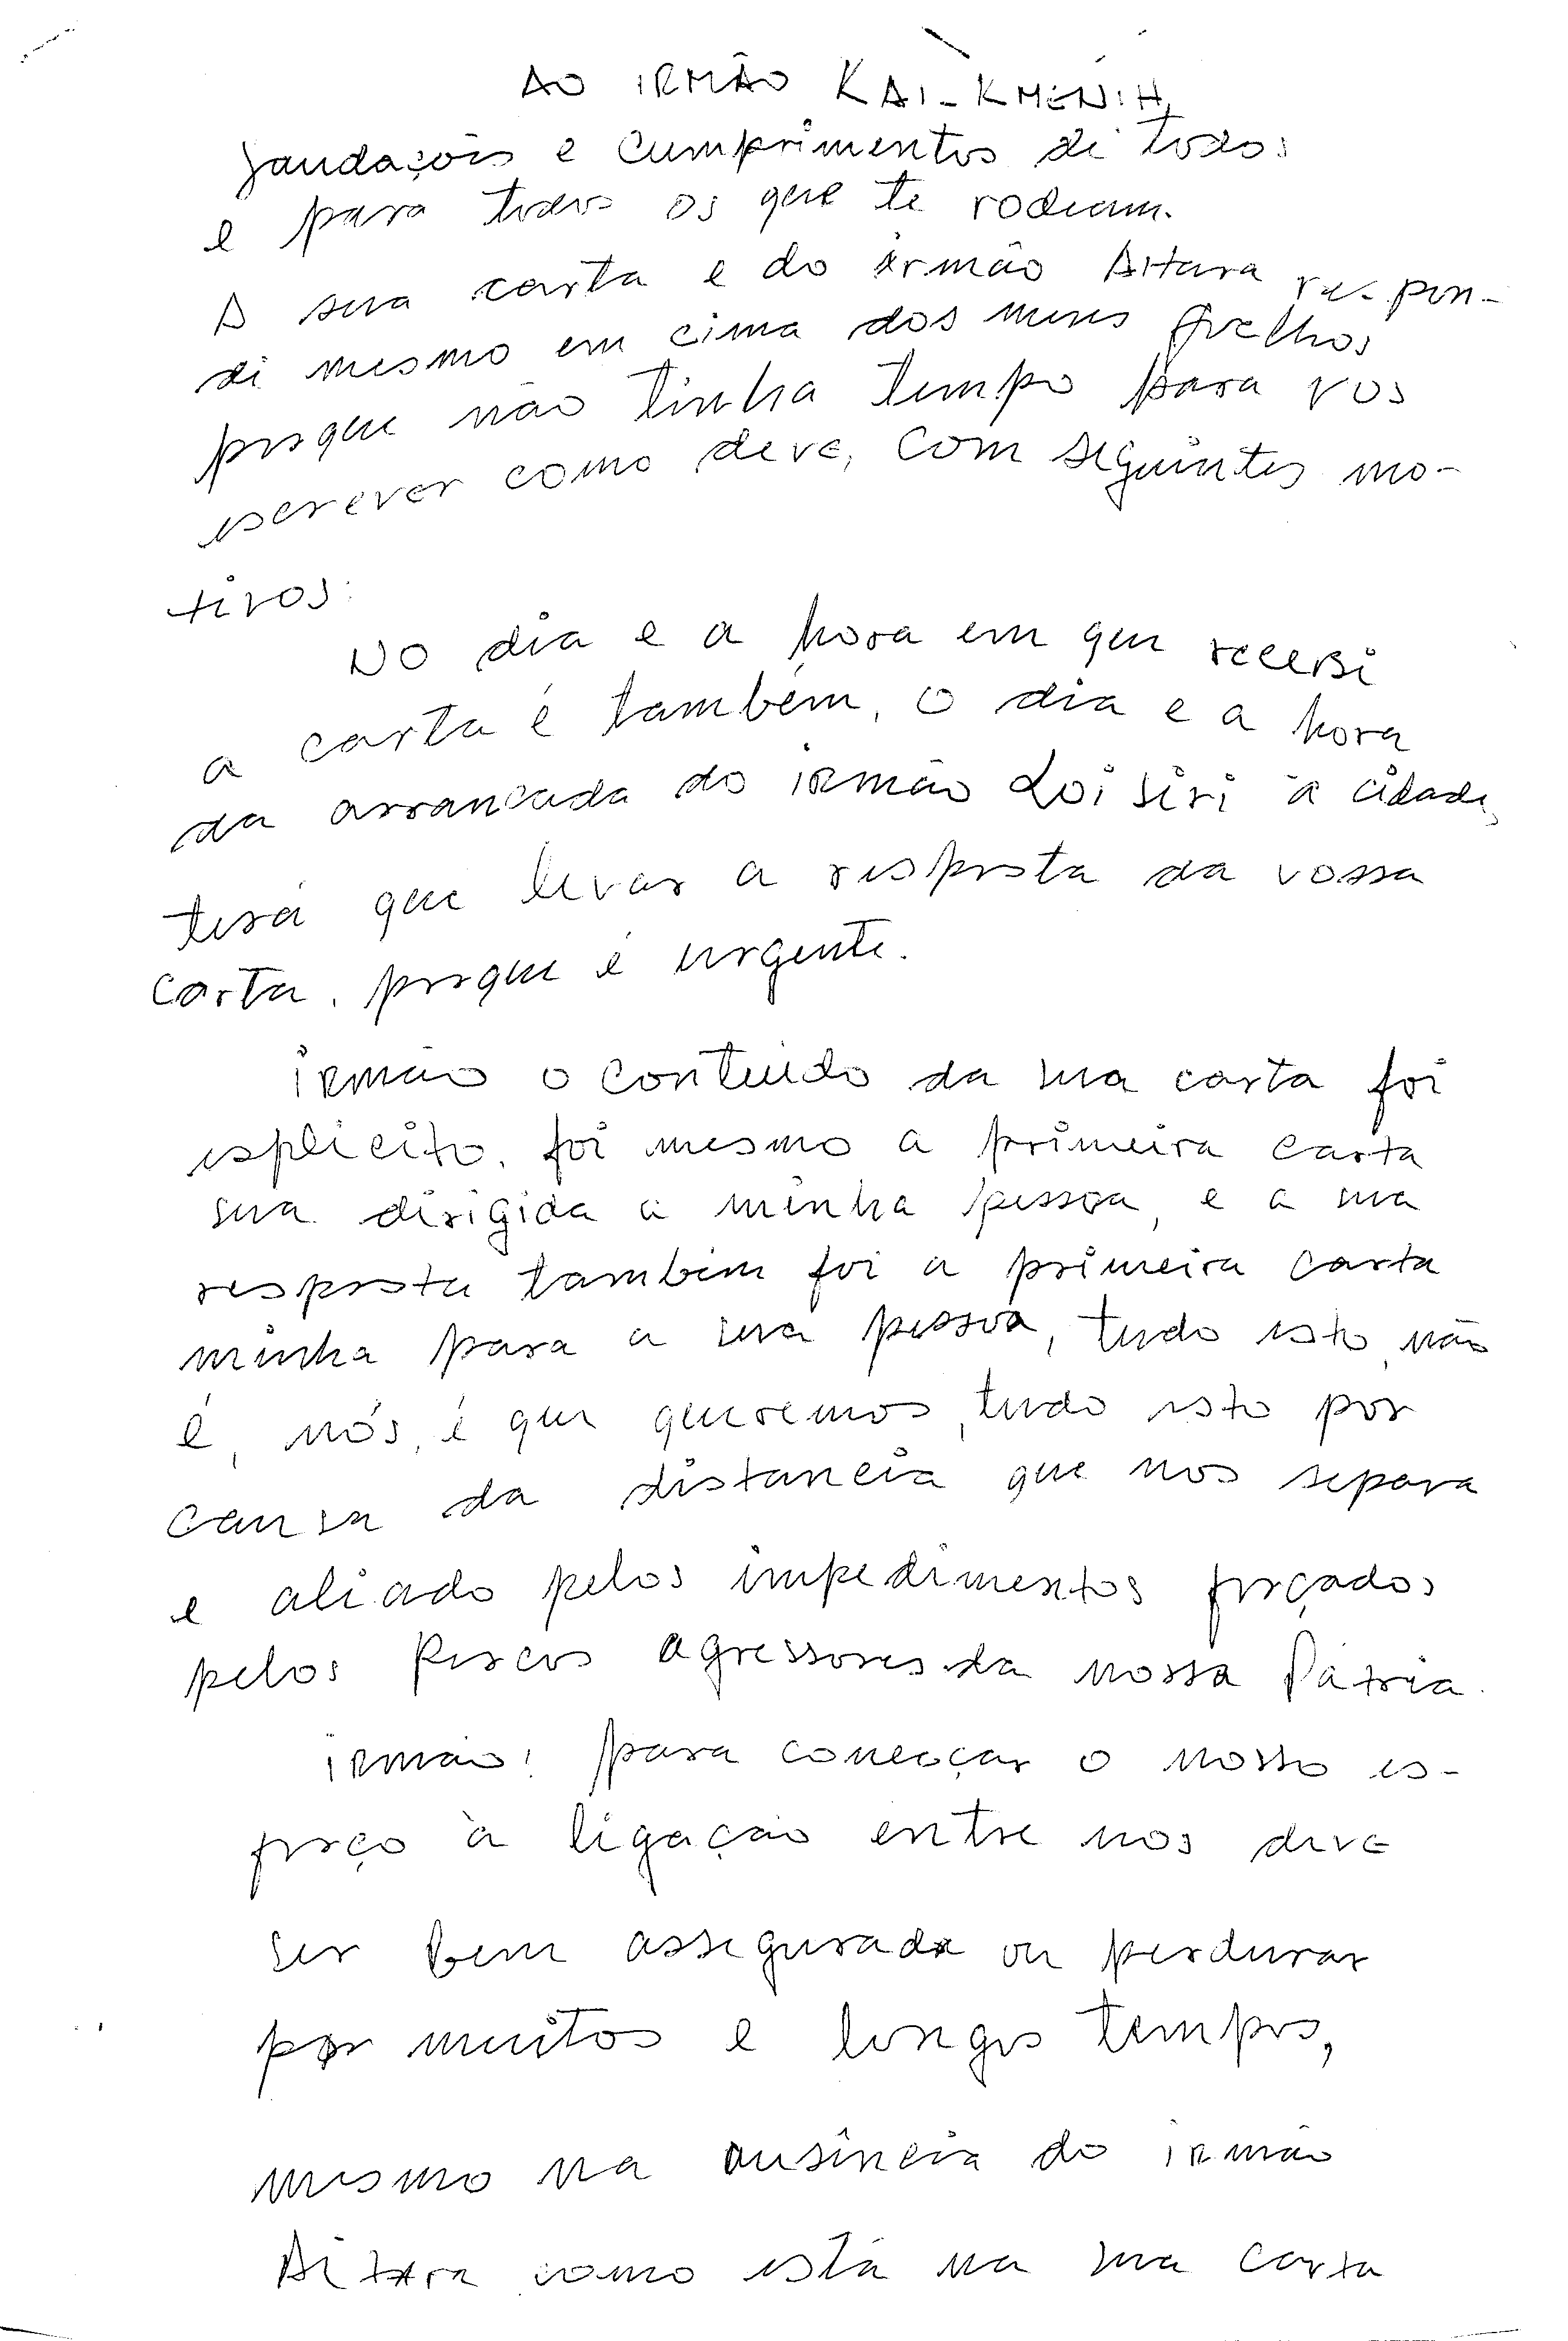 AO IRMÃO KAI-KMENIH,
Saudações e cumprimentos de todos
e para todos os que te rodeiam.
A sua carta e do irmão Aitara respon-
di mesmo em cima dos meus joelhos
porque não tinha tempo para vos
escrever como deve, com seguintes mo-
tivos:
No dia e a hora em que recebi
a carta é também, o dia e a hora
da arrancada do irmão Loi siri à cidade,
terá que levar a resposta da vossa
carta, porque é urgente.
irmão o conteúdo da sua carta foi
esplicito, foi mesmo a primeira carta
sua dirigida a minha pessoa, e a sua
resposta também foi a primeira carta
minha para a sua pessoa, tudo isto, não
é, nós, é que queremos, tudo isto por
causa da distancia que nos separa
e aliado pelos impedimentos forçados
pelos Porcos agressores da nossa Pátria.
irmão! para começar o nosso es-
forço à ligação entre nos deve
ser bem assegurada ou perdurar
por muitos e longos tempos,
mesmo na ausência do irmão
Aitara como está na sua carta